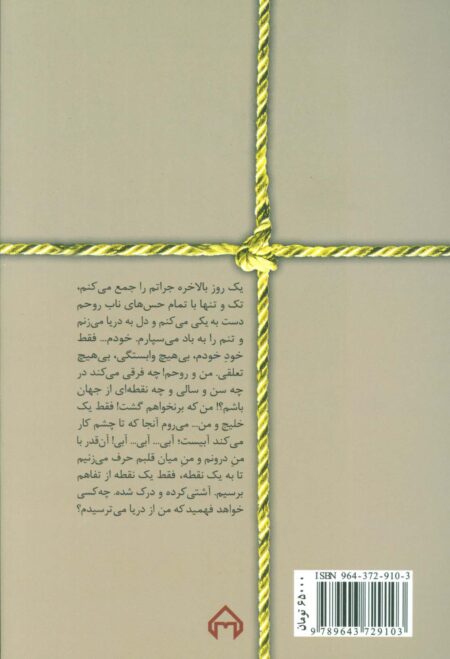 یک روز بالاخره جراتم را جمع می‌کنم،
تک و تنها با تمام حس‌های ناب روحم
دست به یکی می‌کنم و دل به دریا می‌زنم
و تنم را به باد می‌سپارم. خودم... فقط
خودِ خودم، بی‌هیچ وابستگی، بی‌هیچ
تعلقی. من و روحم! چه فرقی می‌کند در
چه سن و سالی و چه نقطه‌ای از جهان
باشم؟! من که برنخواهم گشت! فقط یک
خلیج و من... می‌روم آنجا که تا چشم کار
می‌کند آبیست؛ آبی... آبی... آبی! آن‌قدر با
منِ درونم و منِ میان قلبم حرف می‌زنیم
تا به یک نقطه، فقط یک نقطه از تفاهم
برسیم. آشتی‌کرده و درک شده. چه‌کسی
خواهد فهمید که من از دریا می‌ترسیدم؟
۶۵۰۰۰ تومان
ISBN 964-372-910-3
9 789643 729103